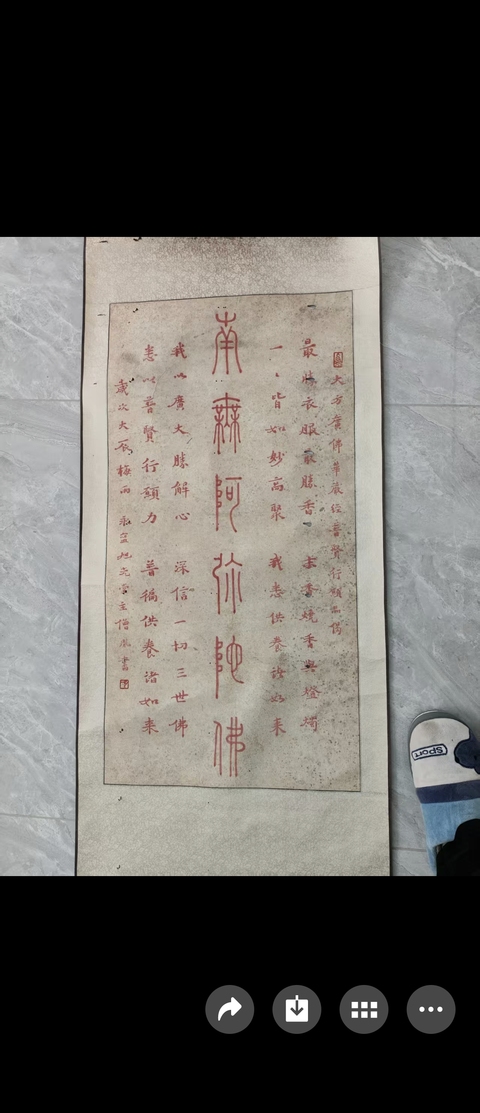 大方廣佛華嚴經普賢行願品偈
最勝衣服最勝香 末香燒香與燈燭
一一皆如妙高聚 我悉供養諸如來
南無阿弥陀佛
我以廣大勝解心 深信一切三世佛
悉以普賢行願力 普徧供養諸如來
歲次大辰梅雨 主僧 書
Sport